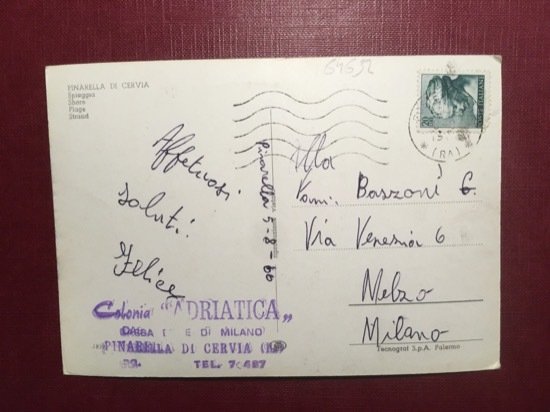 PINARELLA DI CERVIA
Spiaggia
Shore
Plage
Strand
64652
Affettuosi
saluti!
Felice
Pinarella 5-8-60
Alla
Fam:. Bazzoni G.
Via Venezia 6
Melzo
Milano
Colonia "ADRIATICA"
DI MILANO
PINARELLA DI CERVIA
TEL.
POSTE ITALIANE
(RA)
Tecnograf S.p.A. Palermo